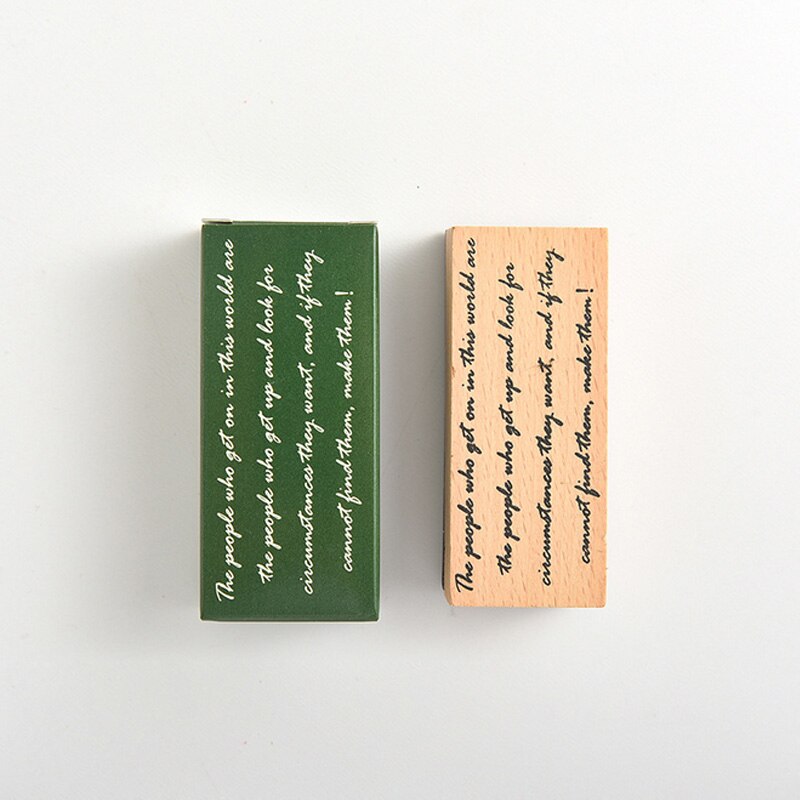 The people who get on in this world are
the people who get up and look for
circumstances they want, and if they
cannot find them, make them!
The people who get on in this world are
the people who get up and look for
circumstances they want, and if they
cannot find them, make them!